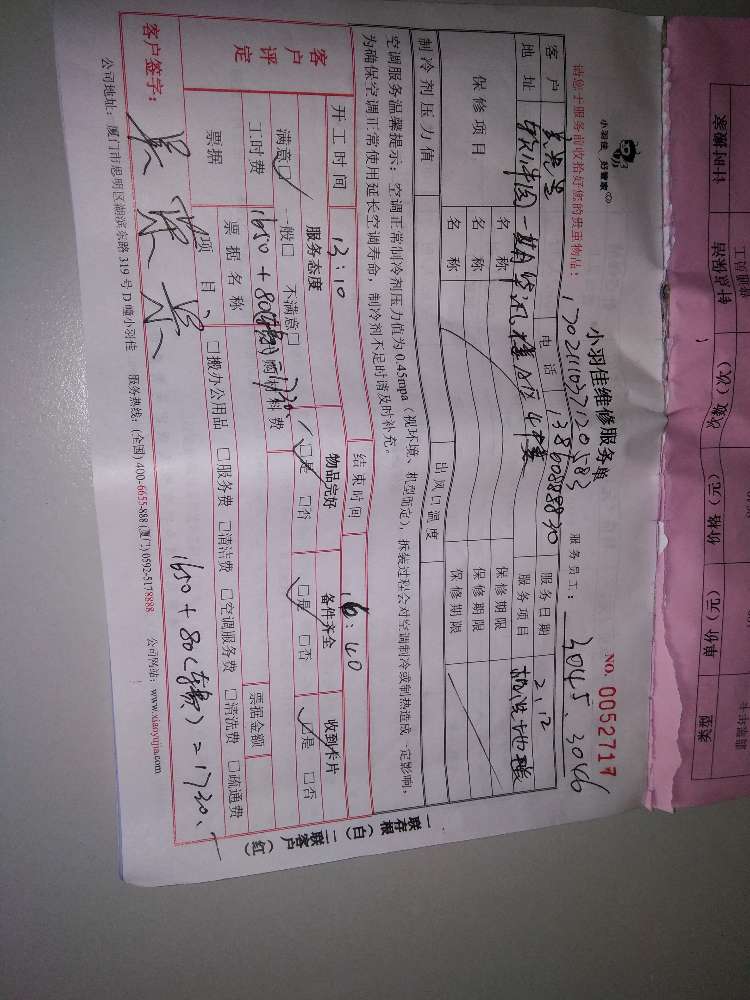 小羽佳 好管家
小羽佳维修服务单
NO. 0052717
请您于服务前收拾好您的贵重物品:
170211107120583
服务员工: 3045、3046
客户
电话
13860888830
服务日期
2.12
地址
软件园一期
4楼
服务项目
机洗地毯
保修项目
名称
保修期限
名称
保修期限
名称
保修期限
制冷剂压力值
出风口温度
空调服务温馨提示:空调正常制冷剂压力值为0.45mpa(视环境、机型而定),拆装过程会对空调制冷或制热造成一定影响,
为确保空调正常使用延长空调寿命,制冷剂不足时请及时补充。
客户评定
开工时间
13:10
结束时间
16:40
服务态度
物品完好
备件齐全
收到卡片
满意□ 一般□ 不满意□
□是 □否
□是 □否
□是 □否
工时费
1650+80
=1730
材料费
票据
票据名称
票据金额
项目、 □搬办公用品 □服务费 □清洁费 □空调服务费 □清洗费 □疏通费
客户签字:
1650+80( 费)=1730.
公司地址:厦门市思明区湖滨东路319号D幢小羽佳 服务热线:(全国)400-6655-888 (厦门)0592-5178888 公司网站:www.xiaoyujia.com
一联存根(白) 二联客户(红)
计时搬家
钟点保洁
次数(次)
价格(元)
单价(元)
类型